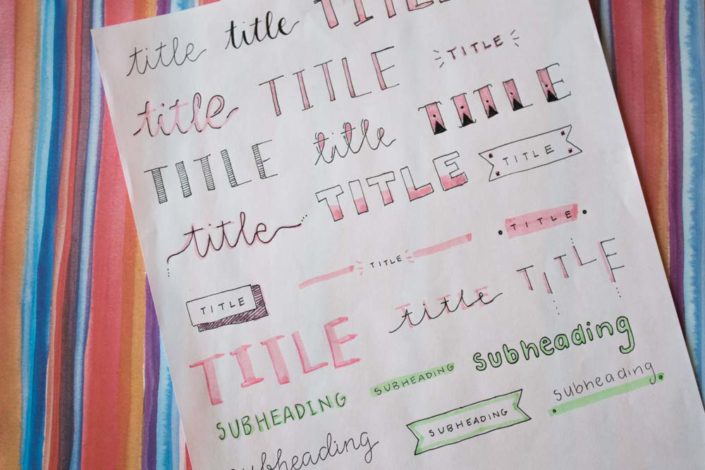 title title TITLE
title TITLE TITLE
TITLE title TITLE
title TITLE TITLE
TITLE TITLE
TITLE title TITLE
TITLE SUBHEADING subheading
SUBHEADING SUBHEADING subheading
subheading